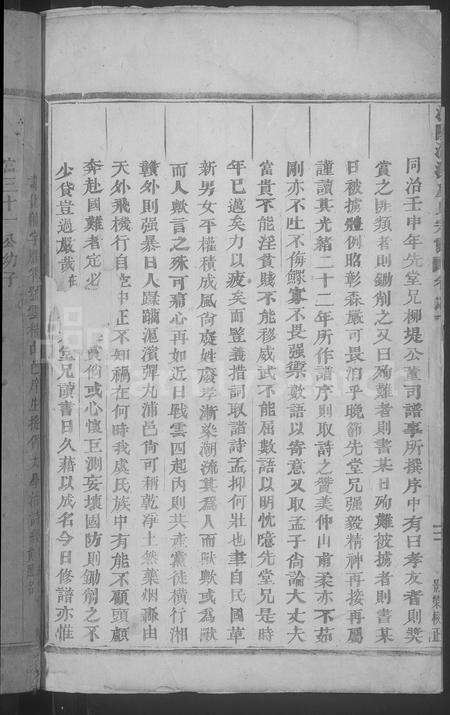 同治壬申年先堂兄柳堤公董司譜事所撰序中有曰孝友者則獎
賞之匪類者則鋤削之又曰殉難者則書某日殉難被擄者則書某
日被擄體例昭彰森嚴可畏洎乎晚節先堂兄強毅精神再接再厲
謹讀其光緒二十二年所作譜序則取詩之贊美仲山甫柔亦不茹
剛亦不吐不侮鰥寡不畏强禦數語以寄意又取孟子尚論大丈夫
富貴不能淫貧賤不能移威武不能屈數語以明忱噫先堂兄是時
年已邁矣力以疲矣而豎義措詞取諸詩孟抑何壯也聿自民國革
新男女平權積成風尚廢姓廢孝漸染潮流其爲人而獸歟或爲獸
而人歟言之殊可痛心再如近日戰雲四起內則共產黨徒橫行湘
贛外則强暴日人蹂躪滬濱彈丸浦邑尚可稱乾淨土然藥烟壽由
天外飛機行自空中正不知禍在何時我虞氏族中有能不顧頭顱
奔赴國難者定必
貲伯或心懷叵測妄壞國防則鋤削之不
少貸豈過嚴哉
堂兄讀書日久藉以成名今日修譜亦惟